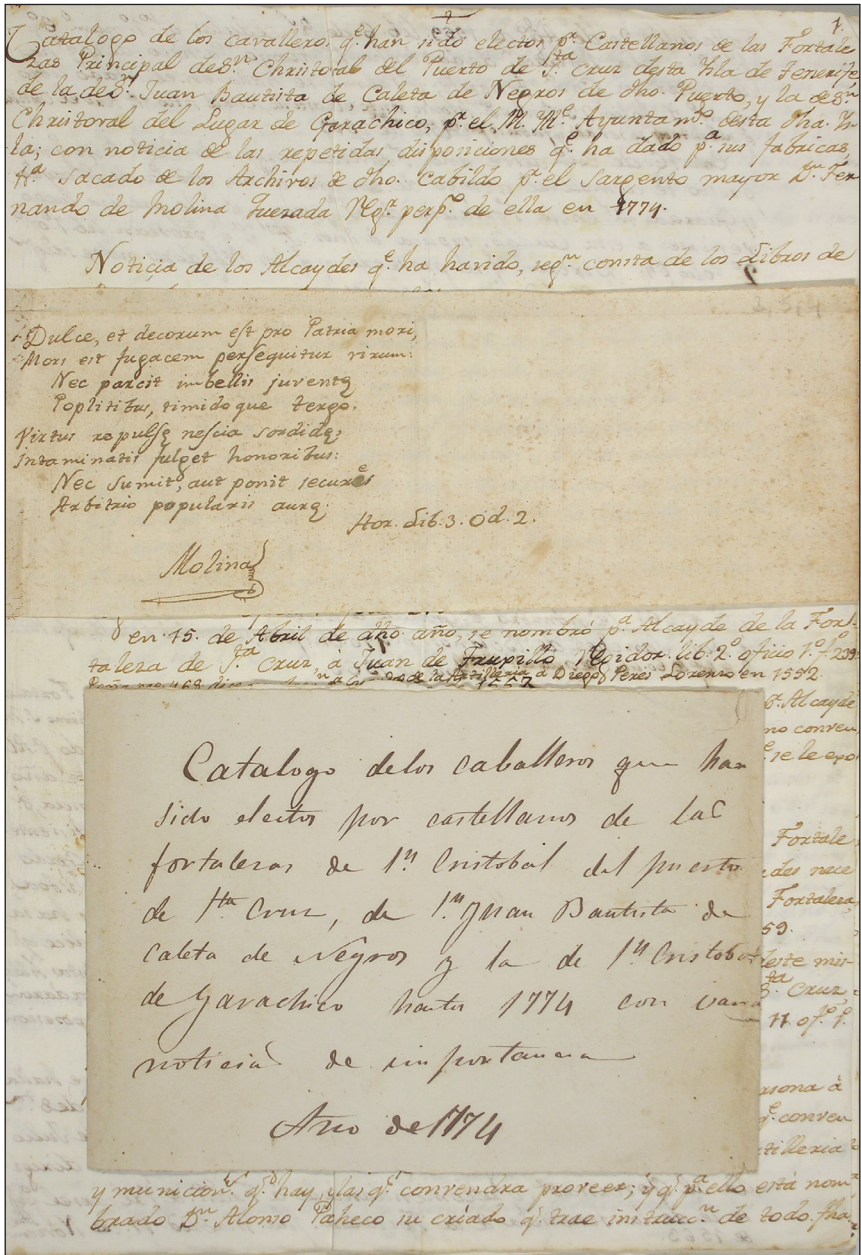 1.
Catalogo de los cavalleros q.e han sido electos p.r Castellanos de las Fortale
zas Principal de S.n Christoval del Puerto de S.ta Cruz desta Isla de Tenerife
de la de S.n Juan Bautista de Caleta de Negros de dho. Puerto, y la de S.n
Christoval del Lugar de Garachico, p.r el M. Ayuntam.to desta dha. Is-
la; con noticia de las repetidas disposiciones q.e ha dado p.a sus fabricas,
sacado de los Archivos de dho. Cabildo p.r el Sargento mayor D.n Fer
nando de Molina Quezada Reg.r perp.o de ella en 1774.
Noticia de los Alcaydes q.e ha havido, seg.n consta de los Libros de
2, 5, 4
Dulce, et decorum est pro Patria mori,
Mors et fugacem persequitur virum:
Nec parcit imbellis juventę
Poplitibus, timidoque tergo.
Virtus repulsę nescia sordidę;
Intaminatis fulget honoribus:
Nec sumit, aut ponit secures
Arbitrio popularis aurę.
Hor. Lib. 3. Od. 2.
Molina
en 15. de Abril de año, se nombró p.a Alcayde de la Fort-
taleza de S.ta Cruz, á Juan de Truxillo Regidor. lib. 2.o oficio 1.o f.o 239
de la Artilleria á Diego Peres Lorenzo en 1552.
p.r Alcayde
no conven
se le
Fortale
des nece
Fortaleza
59.
deste mis-
S.ta Cruz
11 of.o 1.o
Catalogo delos caballeros que han
sido electos por castellanos de las
fortalezas de S.n Cristobal del puerto
de S.ta Cruz, de S.n Juan Bautista de
caleta de Negros y la de S.n Cristobal
de Garachico hasta 1774 con varias
noticias de importancia
Año de 1774
persona á
q.e conven
tilleria
y municion.s q.e hay, y las q.e convendra proveer; y q.e p.a ello está nom
brado D.n Alonso Pacheco su criado q.e trae instrucc.n de todo. fha